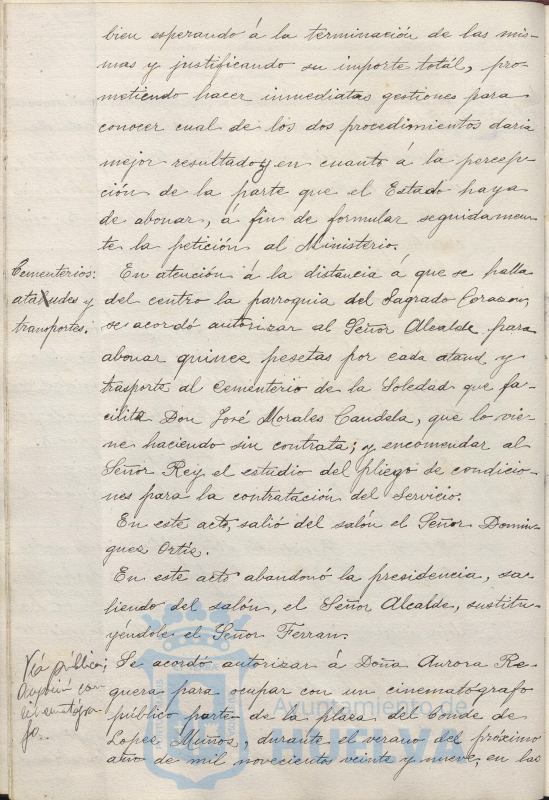 bien esperando á la terminación de las mis-
mas y justificando su importe totál, pro-
metiendo hacer inmediatas gestiones para
conocer cual de los dos procedimientos daria
mejor resultado y en cuanto á la percep-
ción de la parte que el Estado haya
de abonar, á fin de formular seguidamen-
te la petición al Ministerio.
Cementerios:
ataudes y
transportes.
En atención á la distancia á que se halla
del centro la parroquia del Sagrado Corazon,
se acordó autorizar al Señor Alcalde para
abonar quince pesetas por cada ataud y
trasporte al Cementerio de la Soledad que fa-
cilita Don José Morales Candela, que lo vie-
ne haciendo sin contrata; y encomendar al
Señor Rey el estudio del pliego de condicio-
nes para la contratación del Servicio.
En este acto, salió del salón el Señor Domin-
guez Ortiz.
En este acto abandonó la presidencia, sa-
liendo del salón, el Señor Alcalde, sustitu-
yéndole el Señor Ferran.
Vía pública;
con
cinematógra-
fo.
Se acordó autorizar á Doña Aurora Re-
guera para ocupar con un cinematógrafo
público parte de la plaza del Conde de
Lopez Muñoz, durante el verano del próximo
año de mil novecientos veinte y nueve, en las
Ayuntamiento de
HUELVA